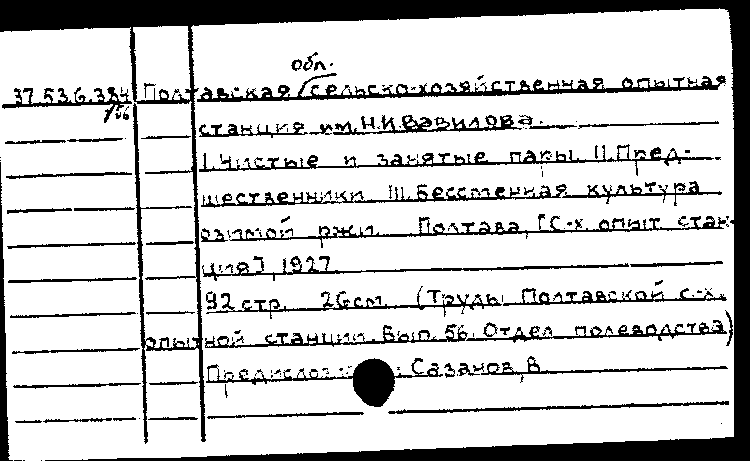 обл.
37.536.384 Полтавская сельско-хозяйственная опытная
/56 станция им. Н.И.Вавилова.
I.Чистые и занятые пары. II.Пред-
шественники. III.Бессменная культура
озимой ржи. Полтава, [С-х. опыт. стан-
ция], 1927.
92 стр. 26см. (Труды Полтавской с.-х.
опытной станции. Вып. 56. Отдел полеводства)
Сазанов, В.